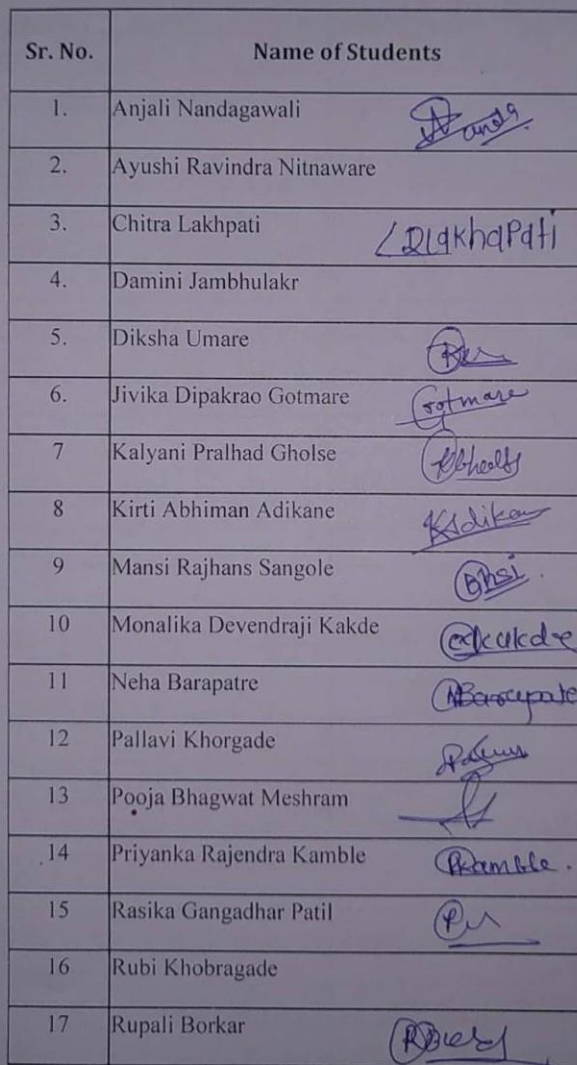 Sr. No. Name of Students
1. Anjali Nandagawali
2. Ayushi Ravindra Nitnaware
3. Chitra Lakhpati Lakhapati
4. Damini Jambhulakr
5. Diksha Umare
6. Jivika Dipakrao Gotmare Gotmare
7 Kalyani Pralhad Gholse
8 Kirti Abhiman Adikane
9 Mansi Rajhans Sangole
10 Monalika Devendraji Kakde
11 Neha Barapatre
12 Pallavi Khorgade
13 Pooja Bhagwat Meshram
14 Priyanka Rajendra Kamble PKamble.
15 Rasika Gangadhar Patil
16 Rubi Khobragade
17 Rupali Borkar